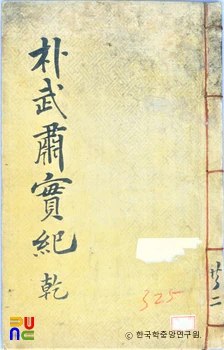 朴武肅實紀 乾
共二
325
PUNC
ⓒ 한국학중앙연구원